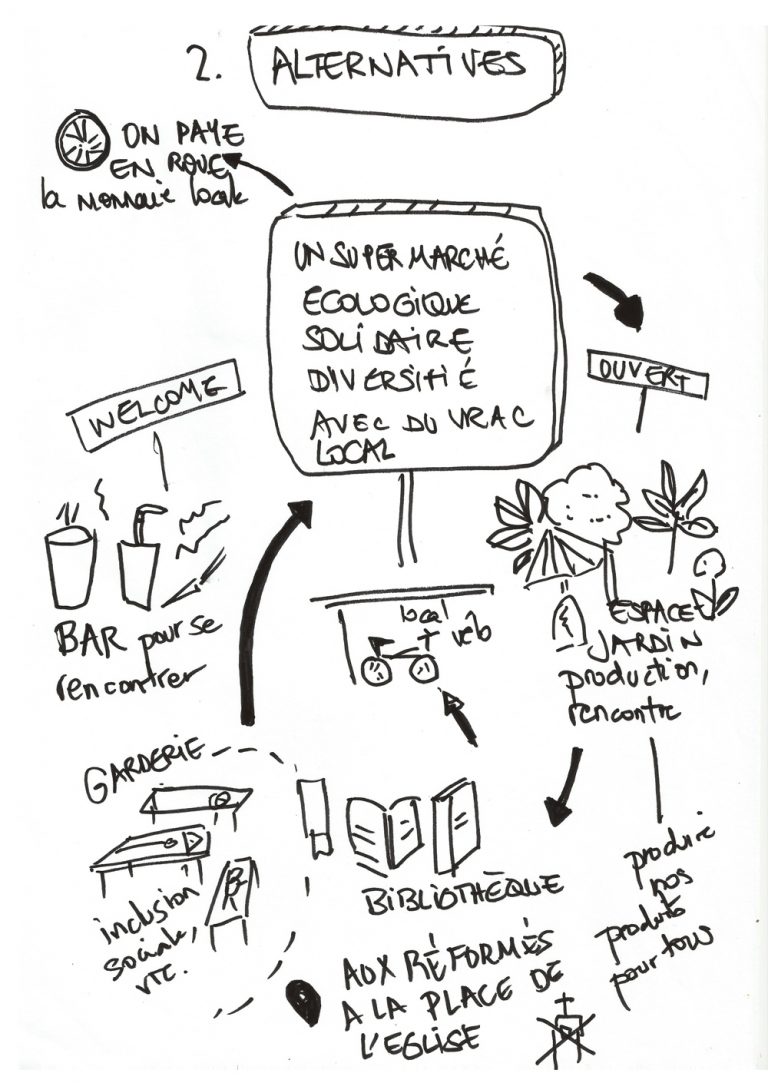 2. ALTERNATIVES
ON PAYE
EN ROUE
la monnaie locale
UN SUPER MARCHÉ
ECOLOGIQUE
SOLIDAIRE
DIVERSITIÉ
AVEC DU VRAC
LOCAL
OUVERT
WELCOME
BAR pour se
rencontrer
local
vélo
ESPACE-
JARDIN
production,
rencontre
GARDERIE
inclusion
sociale,
etc.
BIBLIOTHÈQUE
produire
nos
produits
pour tous
AUX RÉFORMÉS
A LA PLACE DE
L'EGLISE